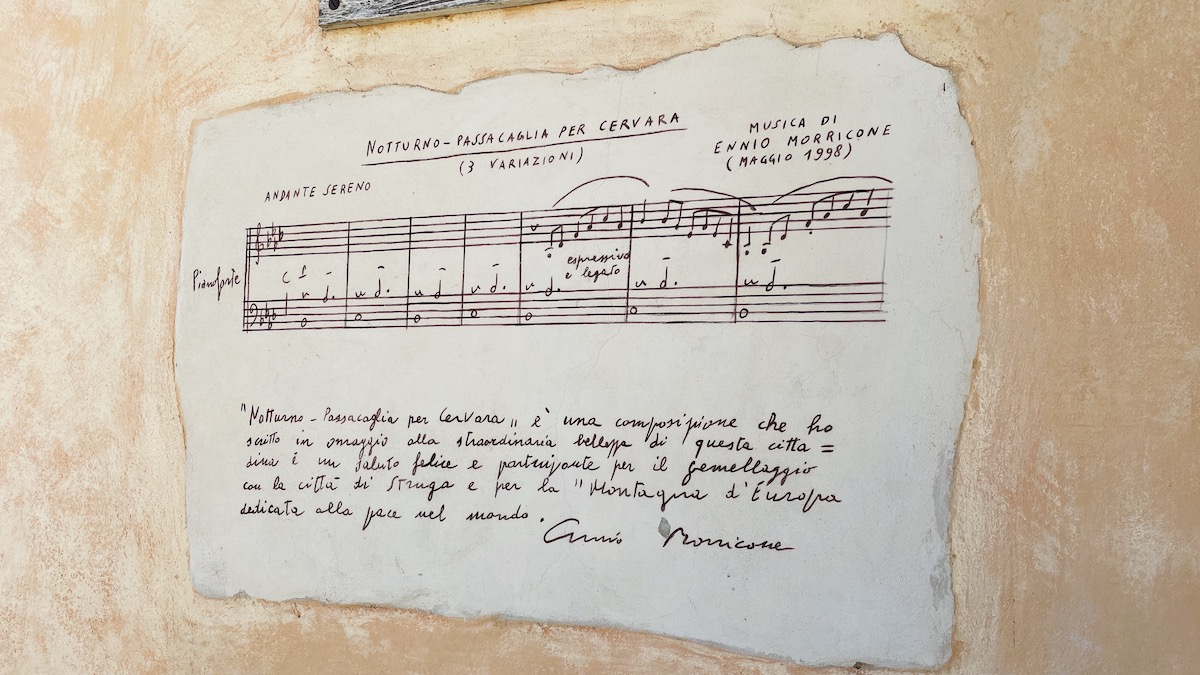 NOTTURNO - PASSACAGLIA PER CERVARA
(3 VARIAZIONI)
MUSICA DI
ENNIO MORRICONE
(MAGGIO 1998)
ANDANTE SERENO
Pianoforte
espressivo
e legato
"Notturno - Passacaglia per Cervara" è una composizione che ho
scritto in omaggio alla straordinaria bellezza di questa citta =
dina È un saluto felice e partecipante per il gemellaggio
con la città di Struga e per la "Montagna d'Europa
dedicata alla pace nel mondo.
Ennio Morricone